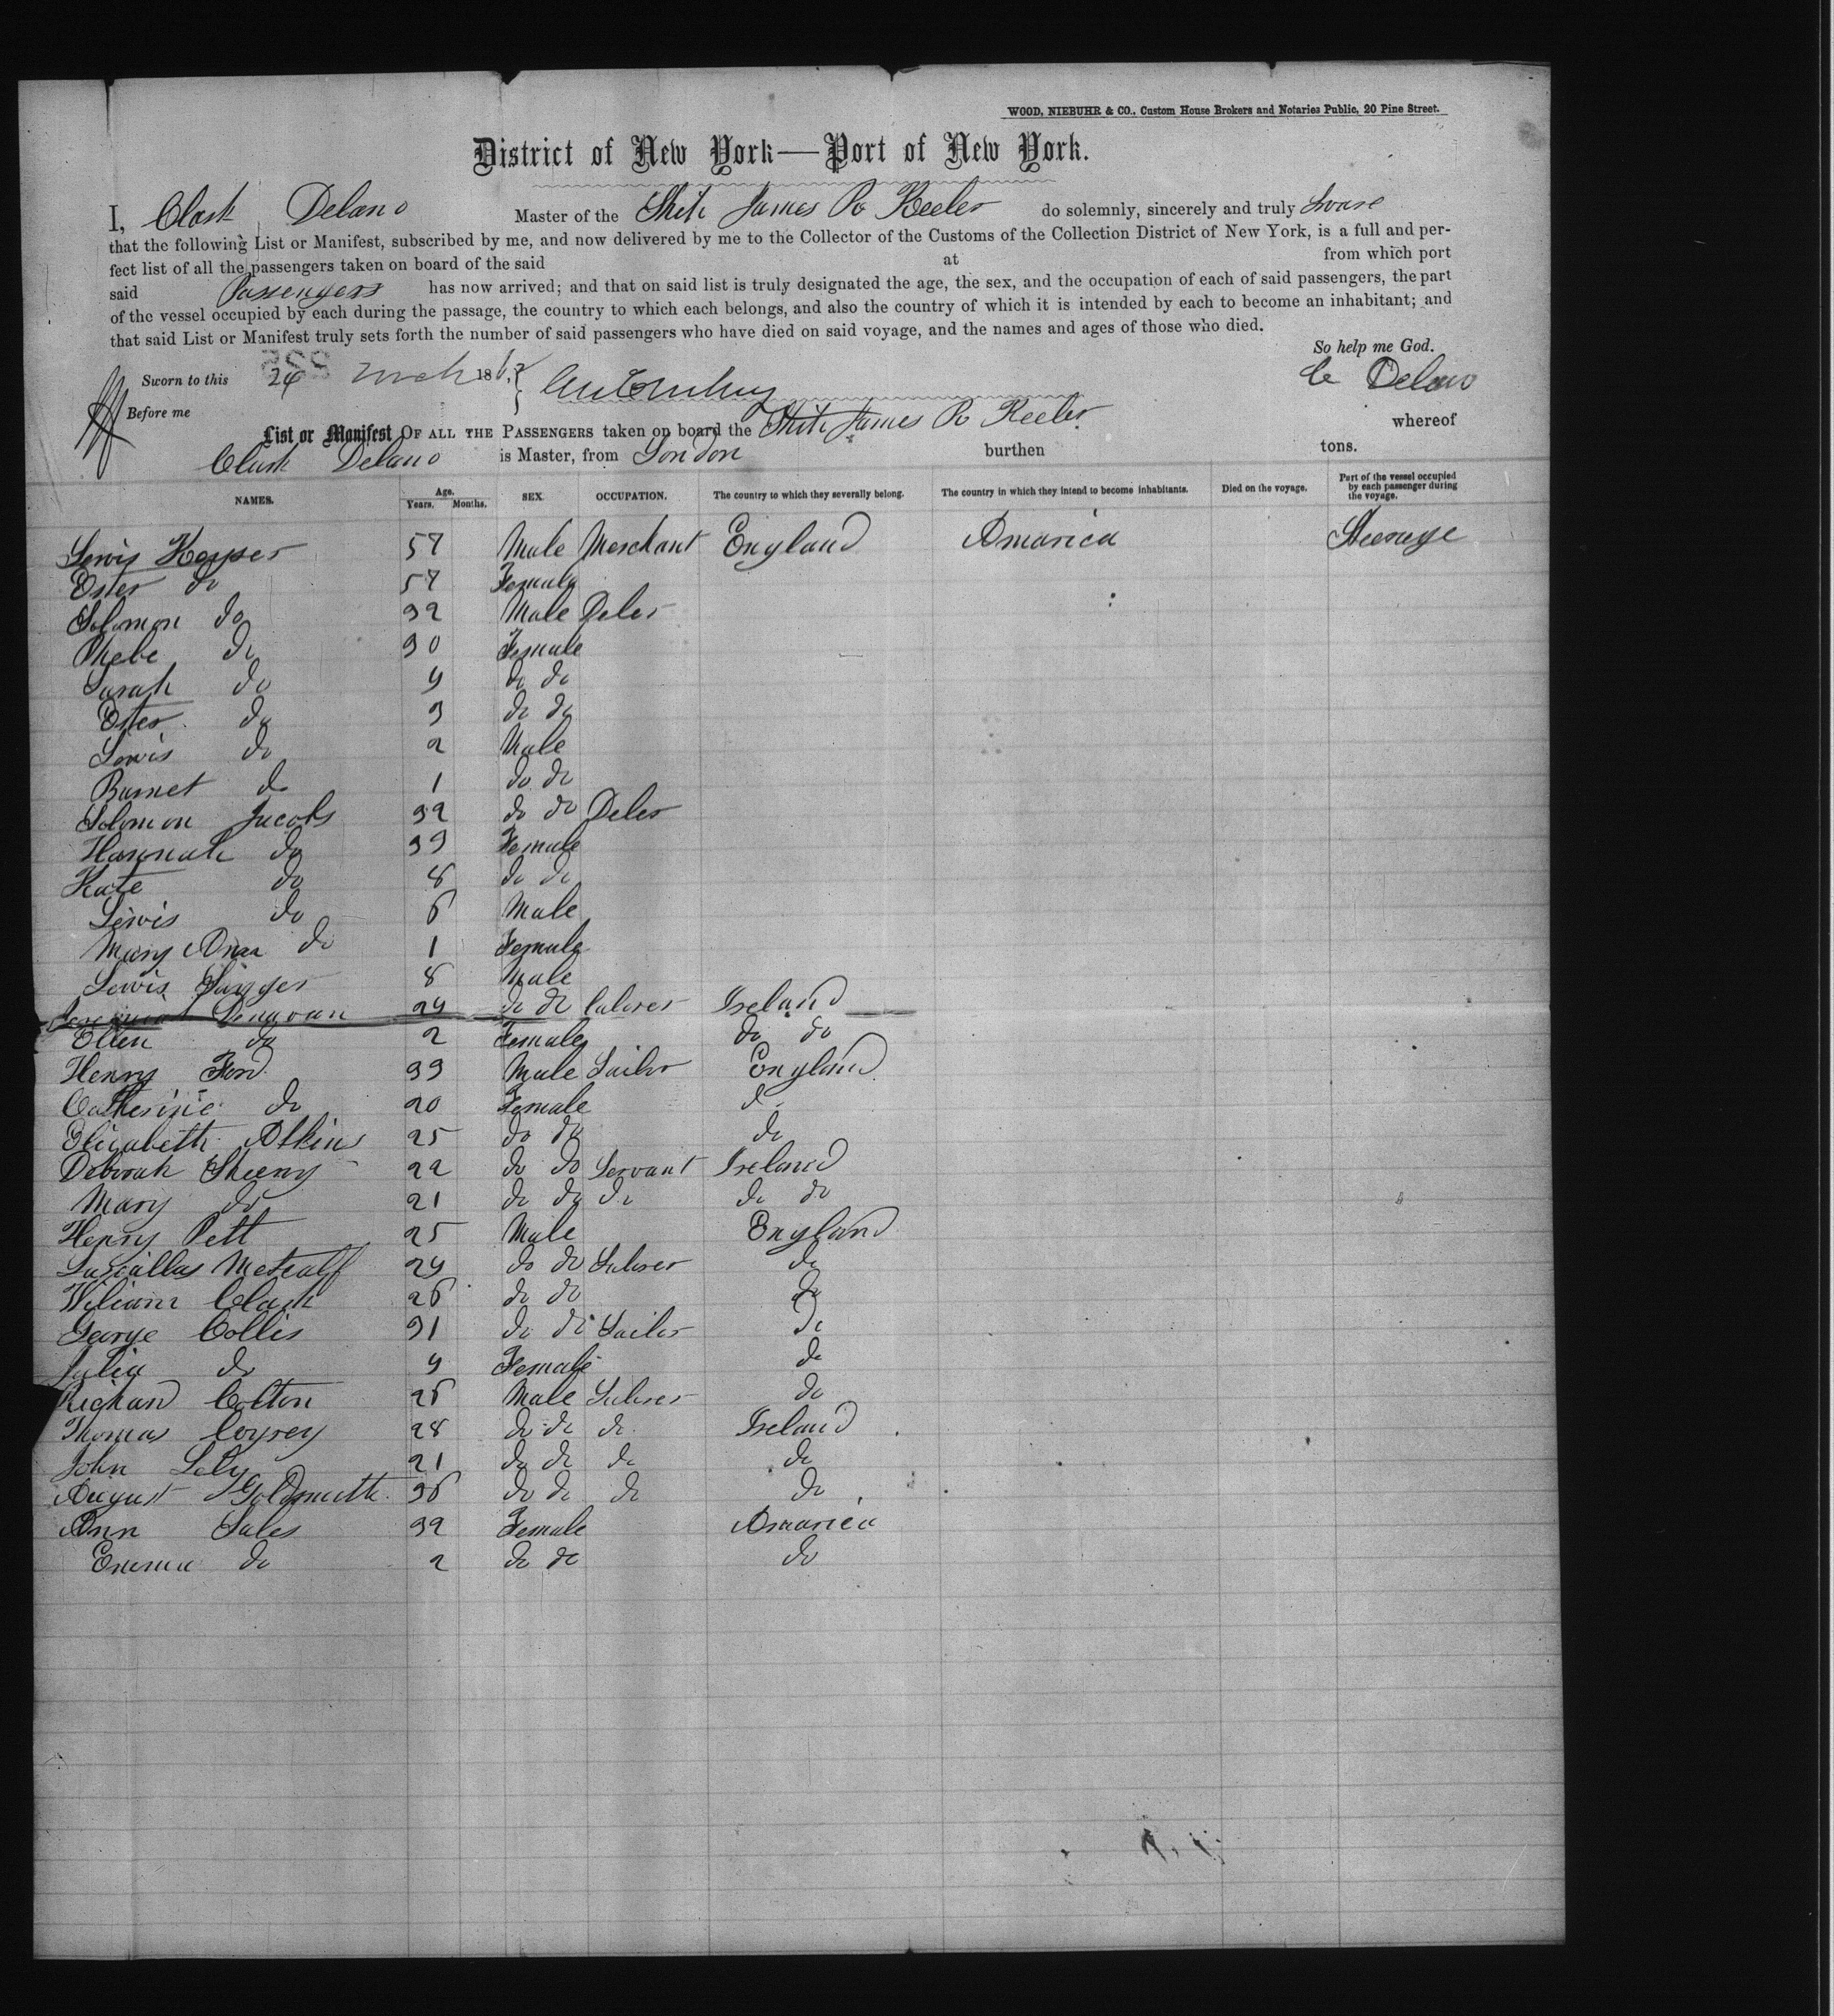 WOOD, NIEBUHR & CO., Custom House Brokers and Notaries Public, 20 Pine Street.
District of New York—Port of New York.
I, Clark Delano Master of the Ship James R Keeler do solemnly, sincerely and truly Sware
that the following List or Manifest, subscribed by me, and now delivered by me to the Collector of the Customs of the Collection District of New York, is a full and per-
fect list of all the passengers taken on board of the said at from which port
said Passengers has now arrived; and that on said list is truly designated the age, the sex, and the occupation of each of said passengers, the part
of the vessel occupied by each during the passage, the country to which each belongs, and also the country of which it is intended by each to become an inhabitant; and
that said List or Manifest truly sets forth the number of said passengers who have died on said voyage, and the names and ages of those who died.
So help me God.
Sworn to this 26 March 186 C Delano
Before me
List or Manifest OF ALL THE PASSENGERS taken on board the Ship James R Keeler whereof
Clark Delano is Master, from London burthen tons.
NAMES. Age. Years. Months. SEX. OCCUPATION. The country to which they severally belong. The country in which they intend to become inhabitants. Died on the voyage. Part of the vessel occupied by each passenger during the voyage.
Lewis 57 Male Merchant England Amarica Steerage
Ester do 57 Female
Solomon do 32 Male Deler
Phebe do 30 Female
Sarah do 4 do do
Ester do 3 do do
Lewis do 2 Male
Barnet do 1 do do
Solomon Jacobs 32 do do Deler
Hannah do 33 Female
Kate do 8 do do
Lewis do 6 Male
Mary Ann do 1 Female
Lewis Singer 8 Male
Jeremiah Donavan 24 do do Labrer Ireland
Ellen do 2 Female do do
Henry Ford 33 Male Sailor England
Catherine do 20 Female do
Elizabeth Atkins 25 do do do
Deborah Sheeny 22 do do Servant Ireland
Mary do 21 do do do do do
Henry Pett 25 Male England
Metcalf 24 do do Labrer do
Wiliam Clark 26 do do do
George Collis 31 do do Sailor do
Julia do 4 Female do
Richard Colton 26 Male Labrer do
Thomas 28 do do do Ireland
John 21 do do do do
August Goldsmith 36 do do do do
Ann Sales 32 Female Amarica
Emma do 2 do do do